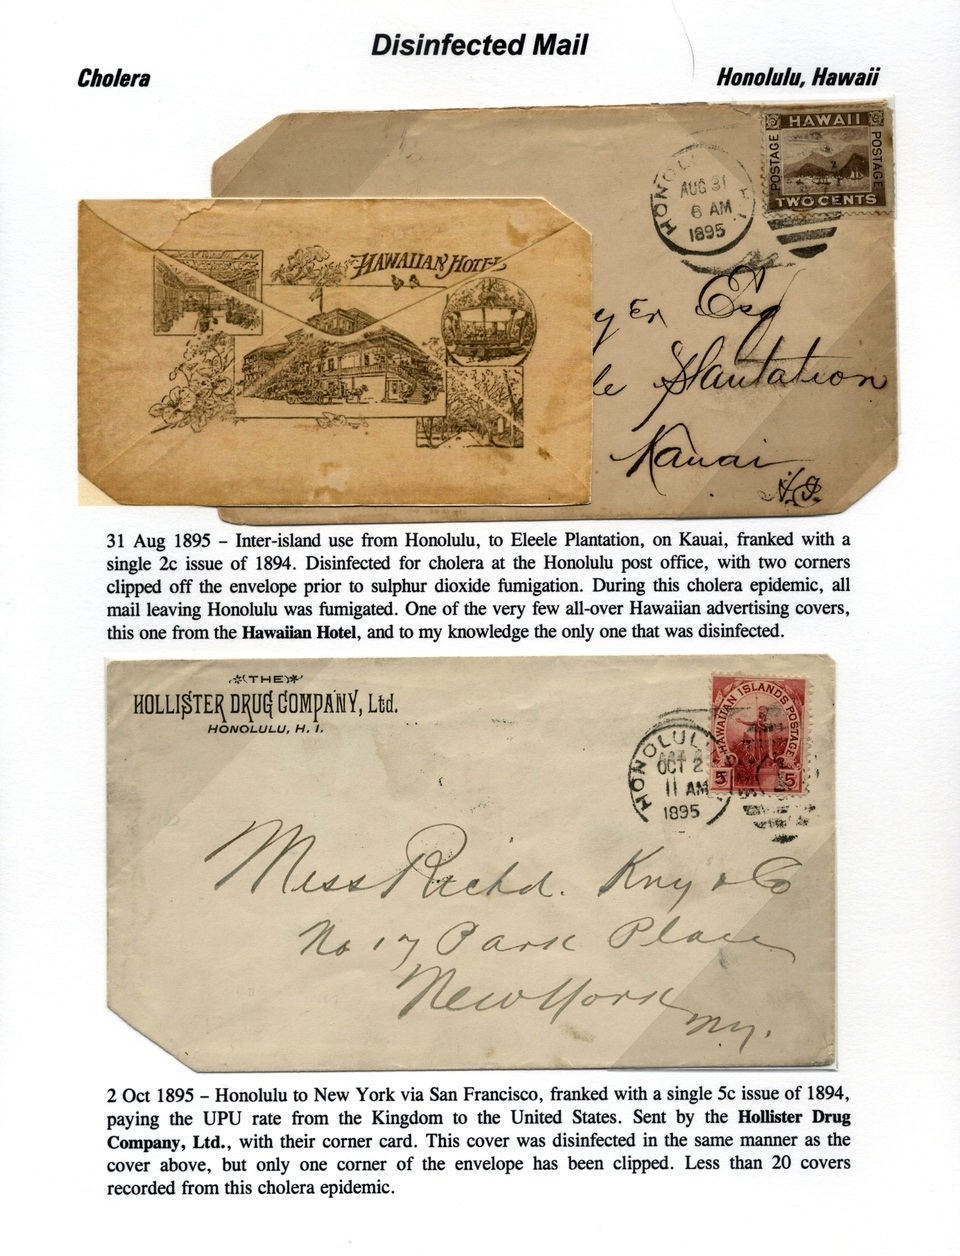 Disinfected Mail
Cholera
Honolulu, Hawaii
HAWAII
POSTAGE
POSTAGE
TWO CENTS
HONOLU H.I.
AUG 31
6 AM
1895
HAWAIIAN HOTEL
yer Esq
le Plantation
Kauai
31 Aug 1895 – Inter-island use from Honolulu, to Eleele Plantation, on Kauai, franked with a
single 2c issue of 1894. Disinfected for cholera at the Honolulu post office, with two corners
clipped off the envelope prior to sulphur dioxide fumigation. During this cholera epidemic, all
mail leaving Honolulu was fumigated. One of the very few all-over Hawaiian advertising covers,
this one from the Hawaiian Hotel, and to my knowledge the only one that was disinfected.
THE
HOLLISTER DRUG COMPANY, Ltd.
HONOLULU, H. I.
HAWAIIAN ISLANDS POSTAGE
5 5
HONOLUL
OCT 2
11 AM
1895
Mess Richd. Kny & Co
No 17 Park Place
New York
N.Y.
2 Oct 1895 – Honolulu to New York via San Francisco, franked with a single 5c issue of 1894,
paying the UPU rate from the Kingdom to the United States. Sent by the Hollister Drug
Company, Ltd., with their corner card. This cover was disinfected in the same manner as the
cover above, but only one corner of the envelope has been clipped. Less than 20 covers
recorded from this cholera epidemic.